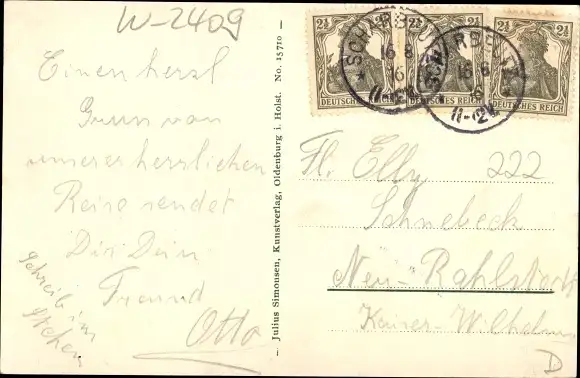 W-2409
Einen herzl
Gruss von
unserer herzlichen
Reise sendet
Dir Dein
Freund
Otto
Schreib im
Stehen
— Julius Simonsen, Kunstverlag, Oldenburg i. Holst. No. 15710 —
2½ 2½ 2½ 2½ 2½
DEUTSCHES REICH DEUTSCHES REICH DEUTSCHES REICH
SCHARBEUTZ
16 8
16
11-12V
SCHARBEUTZ
16 8
16
11-12V
Frl. Elly 222
Schnebeck
Neu-Rahlstedt
Kaiser-Wilhelm
D